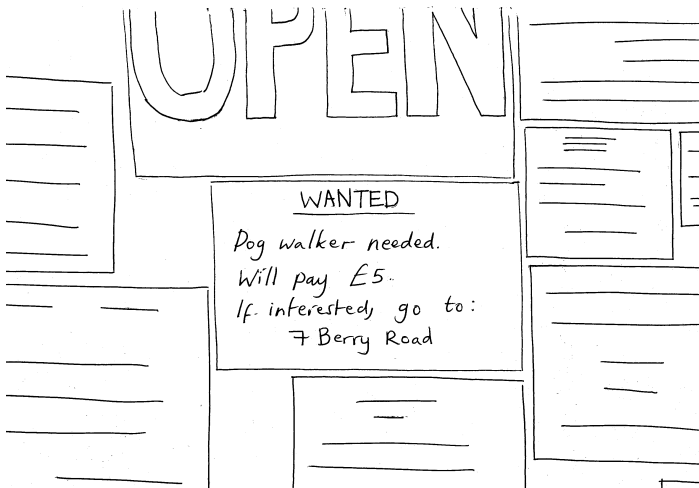 OPEN
WANTED
Dog walker needed.
Will pay £5.
If interested, go to:
7 Berry Road